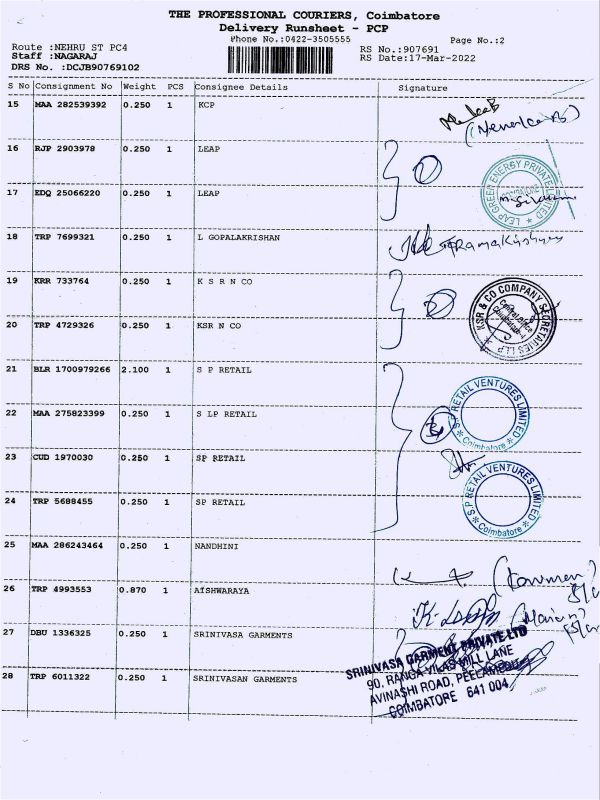 THE PROFESSIONAL COURIERS, Coimbatore
Delivery Runsheet - PCP
Phone No.:0422-3505555
Page No.:2
Route :NEHRU ST PC4
RS No.:907691
Staff :NAGARAJ
RS Date:17-Mar-2022
DRS No. :DCJB90769102
S No Consignment No Weight PCS Consignee Details Signature
15 MAA 282539392 0.250 1 KCP
16 RJP 2903978 0.250 1 LEAP
17 EDQ 25066220 0.250 1 LEAP
LEAP GREEN ENERGY PRIVATE LIMITED
18 TRP 7699321 0.250 1 L GOPALAKRISHAN
19 KRR 733764 0.250 1 K S R N CO
20 TRP 4729326 0.250 1 KSR N CO
KSR & CO COMPANY SECRETARIES LLP
21 BLR 1700979266 2.100 1 S P RETAIL
22 MAA 275823399 0.250 1 S LP RETAIL
S.P RETAIL VENTURES LIMITED
Coimbatore
23 CUD 1970030 0.250 1 SP RETAIL
24 TRP 5688455 0.250 1 SP RETAIL
S.P RETAIL VENTURES LIMITED
Coimbatore
25 MAA 286243464 0.250 1 NANDHINI
26 TRP 4993553 0.870 1 AISHWARAYA
27 DBU 1336325 0.250 1 SRINIVASA GARMENTS
28 TRP 6011322 0.250 1 SRINIVASAN GARMENTS
SRINIVASA GARMENT PRIVATE LTD
90, RANGA VILAS MILL LANE
AVINASHI ROAD, PEELAMEDU
COIMBATORE 641 004